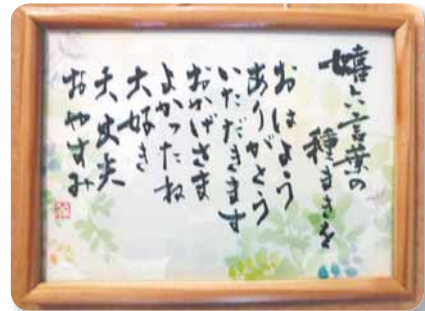 嬉しい言葉の
種まきを
おはよう
ありがとう
いただきます
おかげさま
よかったね
大好き
大丈夫
おやすみ